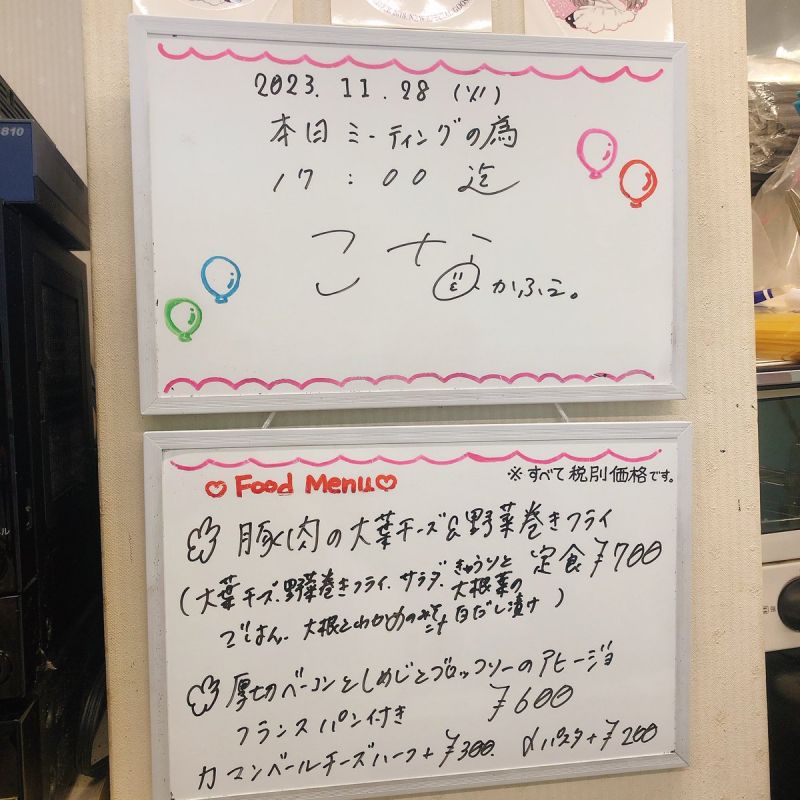 2023.11.28(火)
本日ミーティングの為
17:00迄
こな
かふぇ。
Food Menu
※すべて税別価格です。
豚肉の大葉チーズ&野菜巻きフライ
定食 ¥700
(大葉チーズ、野菜巻きフライ、サラダ、きゅうりと大根葉の
ごはん、大根とわかめのみそ汁 白だし漬け)
厚切ベーコンとしめじとブロッコリーのアヒージョ
フランスパン付き ¥600
カマンベールチーズハーフ+¥300. パスタ+¥200
810